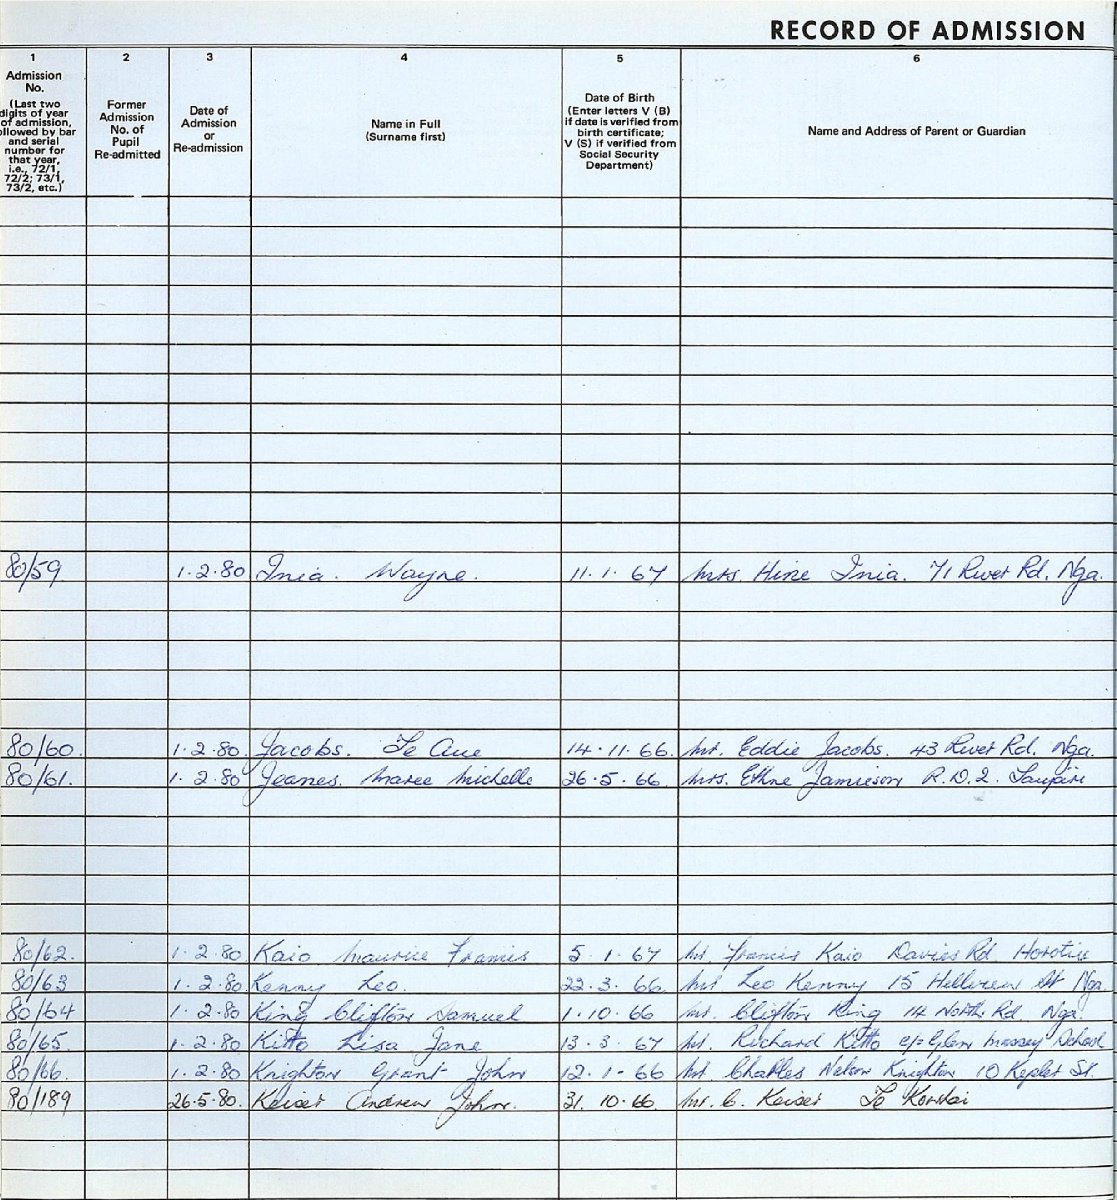 RECORD OF ADMISSION
1 2 3 4 5 6
Admission
No.
(Last two
digits of year
of admission,
ollowed by bar
and serial
number for
that year,
i.e., 72/1,
72/2; 73/1,
73/2, etc.)
Former
Admission
No. of
Pupil
Re-admitted
Date of
Admission
or
Re-admission
Name in Full
(Surname first)
Date of Birth
(Enter letters V (B)
if date is verified from
birth certificate;
V (S) if verified from
Social Security
Department)
Name and Address of Parent or Guardian
80/59 1.2.80 Inia. Wayne. 11.1.67 Mrs. Hine Inia. 71 River Rd. Nga.
80/60. 1.2.80. Jacobs. Te Aue 14.11.66. Mr. Eddie Jacobs. 43 River Rd. Nga.
80/61. 1.2.80 Jeanes. Maree Michelle 26.5.66. Mrs. Ethne Jamieson R.D.2. Taupiri
80/62. 1.2.80 Kaio Maurice Francis 5.1.67 Mr. Francis Kaio Davies Rd. Horotiu
80/63 1.2.80 Kenny Leo. 22.3.66. Mr Leo Kenny 15 Hillview St Nga
80/64 1.2.80 King Clifton Samuel 1.10.66 Mr. Clifton King 14 North Rd. Nga.
80/65. 1.2.80 Kitto Lisa Jane 13.3.67 Mr. Richard Kitto c/- Glen Massey School
80/66. 1.2.80 Knighton Grant John 12.1.66 Mr Charles Nelson Knighton 10 Kepler St.
80/189 26.5.80. Keiser Andrew John. 31.10.66. Mr. C. Keiser Te Kowhai